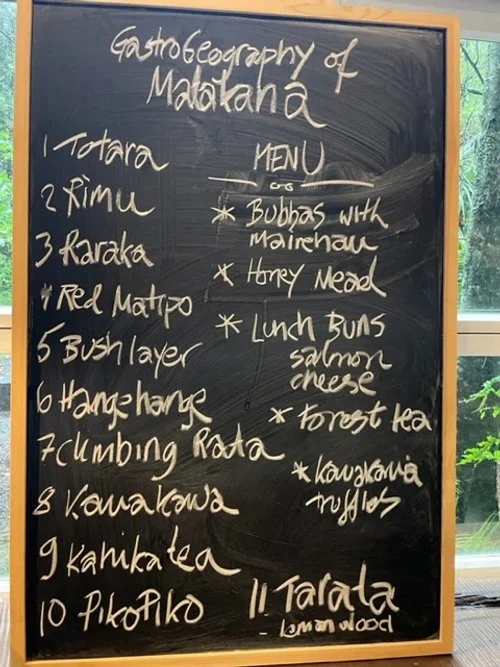 GastroGeography of
Matakana
1 Totara
2 Rimu
3 Karaka
4 Red Matipo
5 Bush layer
6 Hangehange
7 Climbing Rata
8 Kawakawa
9 Kanika tea
10 PikoPiko
MENU
* Bubbas with
mairehau
* Honey Mead
* Lunch Buns
salmon
cheese
* Forest tea
* Kawakawa
truffles
11 Tarata
- lemon wood